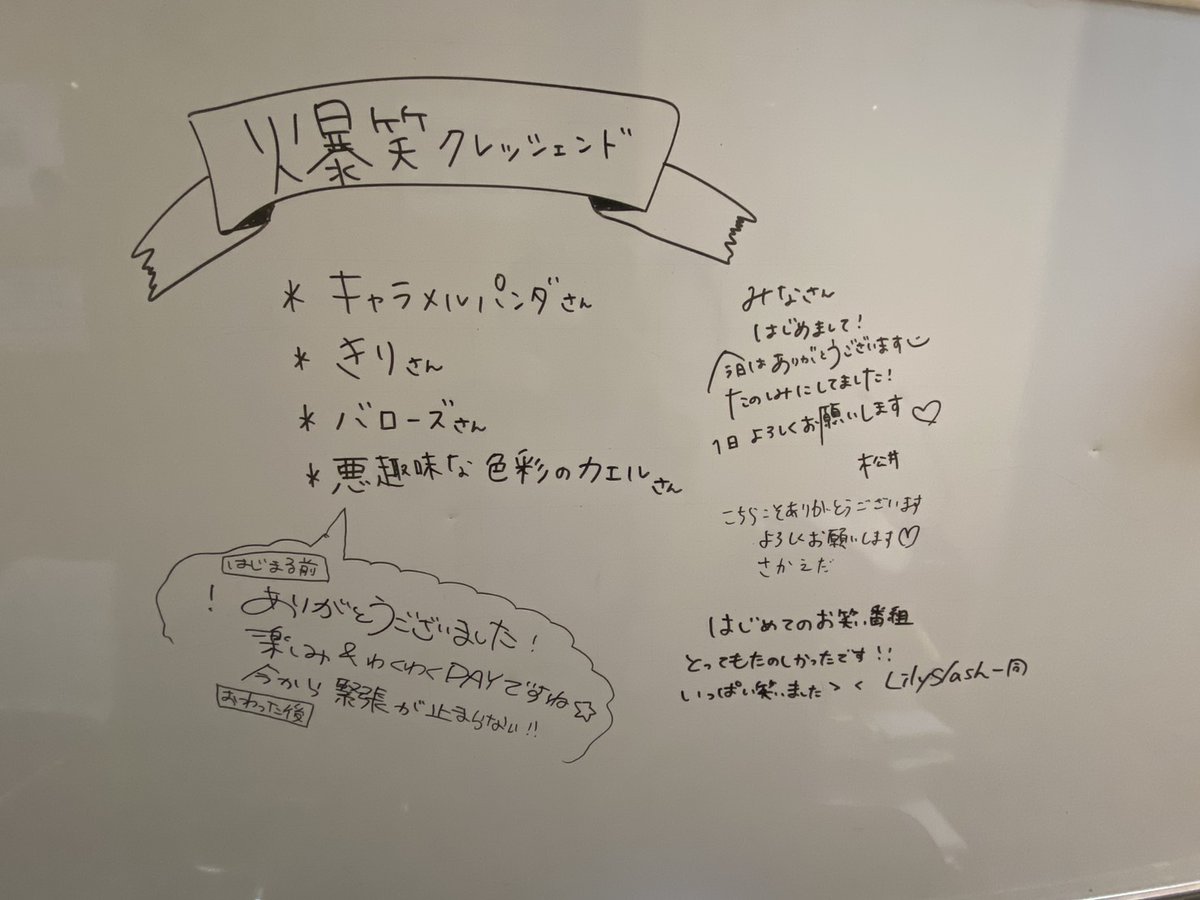 爆笑クレッシェンド
* キャラメルパンダさん
* きりさん
* バローズさん
* 悪趣味な色彩のカエルさん
はじまる前
! ありがとうございました!
楽しみ&わくわくDAYですね☆
今から緊張が止まらない!!
おわった後
みなさん
はじめまして!
今日はありがとうございます
たのしみにしてました!
1日よろしくお願いします♡
松井
こちらこそありがとうございます
よろしくお願いします♡
さかえだ
はじめてのお笑い番組
とってもたのしかったです!!
いっぱい笑いました> < LilySlash一同